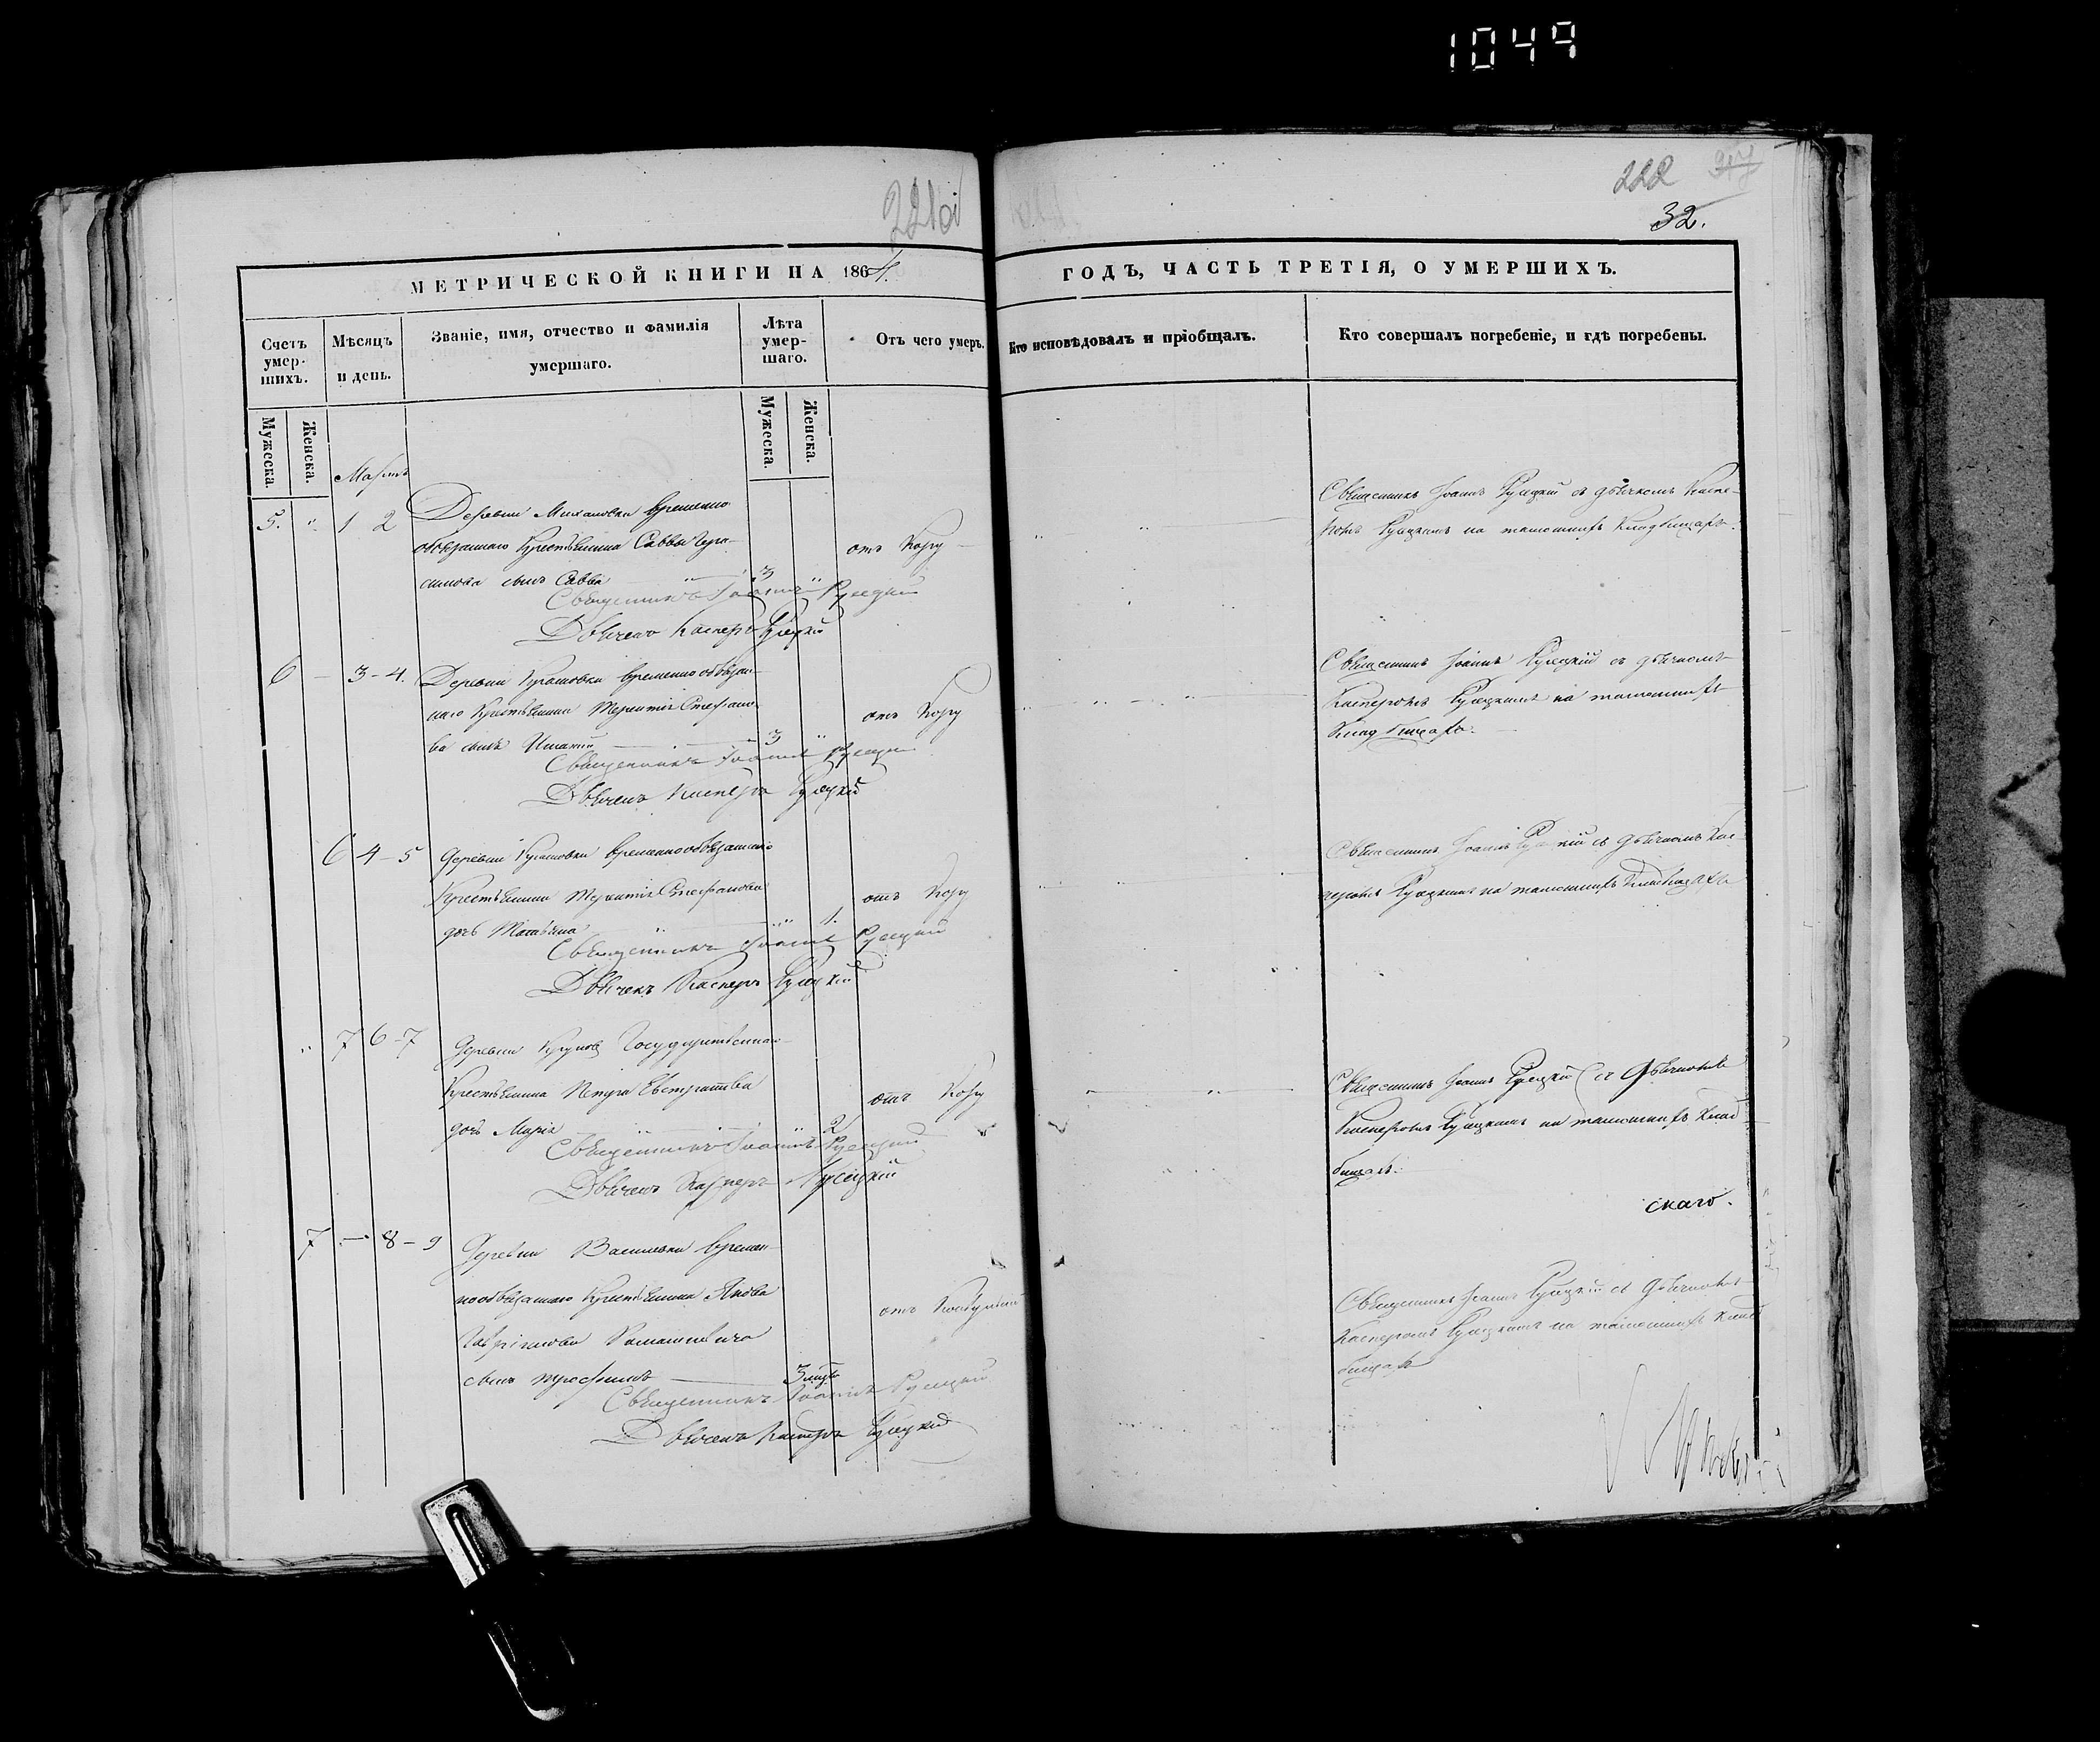 1049
221об
222
32.
МЕТРИЧЕСКОЙ КНИГИ НА 1864.
ГОДЪ, ЧАСТЬ ТРЕТІЯ, О УМЕРШИХЪ.
Счетъ умер-
шихъ.
Мѣсяцъ
и день.
Званіе, имя, отчество и фамилія
умершаго.
Лѣта
умер-
шаго.
Отъ чего умеръ.
Кто исповѣдовалъ и пріобщалъ.
Кто совершалъ погребеніе, и гдѣ погребены.
Мужеска.
Женска.
Мужеска.
Женска.
Мартъ
5. " 1 2
Деревни Михановки временно
обязаннаго Крестьянина Саввы Гера-
симова сынъ Савва 3 "
отъ Кору
Священникъ Іоаннъ Русецкій
Дьячекъ Касперъ Русецкій
Священникъ Іоаннъ Русецкій съ дьячкомъ Каспе-
ромъ Русецкимъ на тамошнемъ Кладбищѣ.
6 — 3-4.
Деревни временнообязан-
наго Крестьянина Терентія Стефано-
ва сынъ 3 "
отъ Кору
Священникъ Іоаннъ Русецкій
Дьячекъ Касперъ Русецкій
Священникъ Іоаннъ Русецкій съ дьячкомъ
Касперомъ Русецкимъ на тамошнемъ
Кладбищѣ.
6 4-5
Деревни временнообязаннаго
Крестьянина Терентія Стефанова
дочь Татьяна " 1.
отъ Кору
Священникъ Іоаннъ Русецкій
Дьячекъ Касперъ Русецкій
Священникъ Іоаннъ Русецкій съ дьячкомъ Кас-
перомъ Русецкимъ на тамошнемъ Кладбищѣ
" 7 6-7
Деревни Государственнаго
Крестьянина Петра Евстратіева
дочь Марія " 2
отъ Кору
Священникъ Іоаннъ Русецкій
Дьячекъ Касперъ Русецкій
Священникъ Іоаннъ Русецкій съ Дьячкомъ
Касперомъ Русецкимъ на тамошнемъ Клад-
бищѣ.
скаго.
7 — 8-9
Деревни Васильки времен-
нообязаннаго Крестьянина Якова
Гавріилова
сынъ Трофимъ 3
отъ
Священникъ Іоаннъ Русецкій
Дьячекъ Касперъ Русецкій
Священникъ Іоаннъ Русецкій съ Дьячкомъ
Касперомъ Русецкимъ на тамошнемъ Клад-
бищѣ